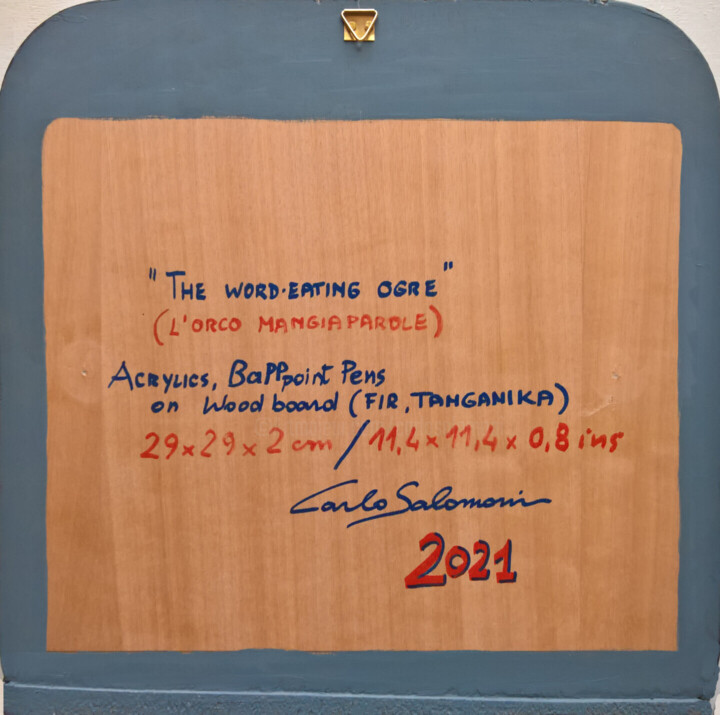 "THE WORD-EATING OGRE"
(L'ORCO MANGIAPAROLE)
ACRYLICS, BallPpoint Pens
on Wood board (FIR, TANGANIKA)
29x29x2 cm / 11,4x11,4x0,8 ins
Carlo Salomoni
2021